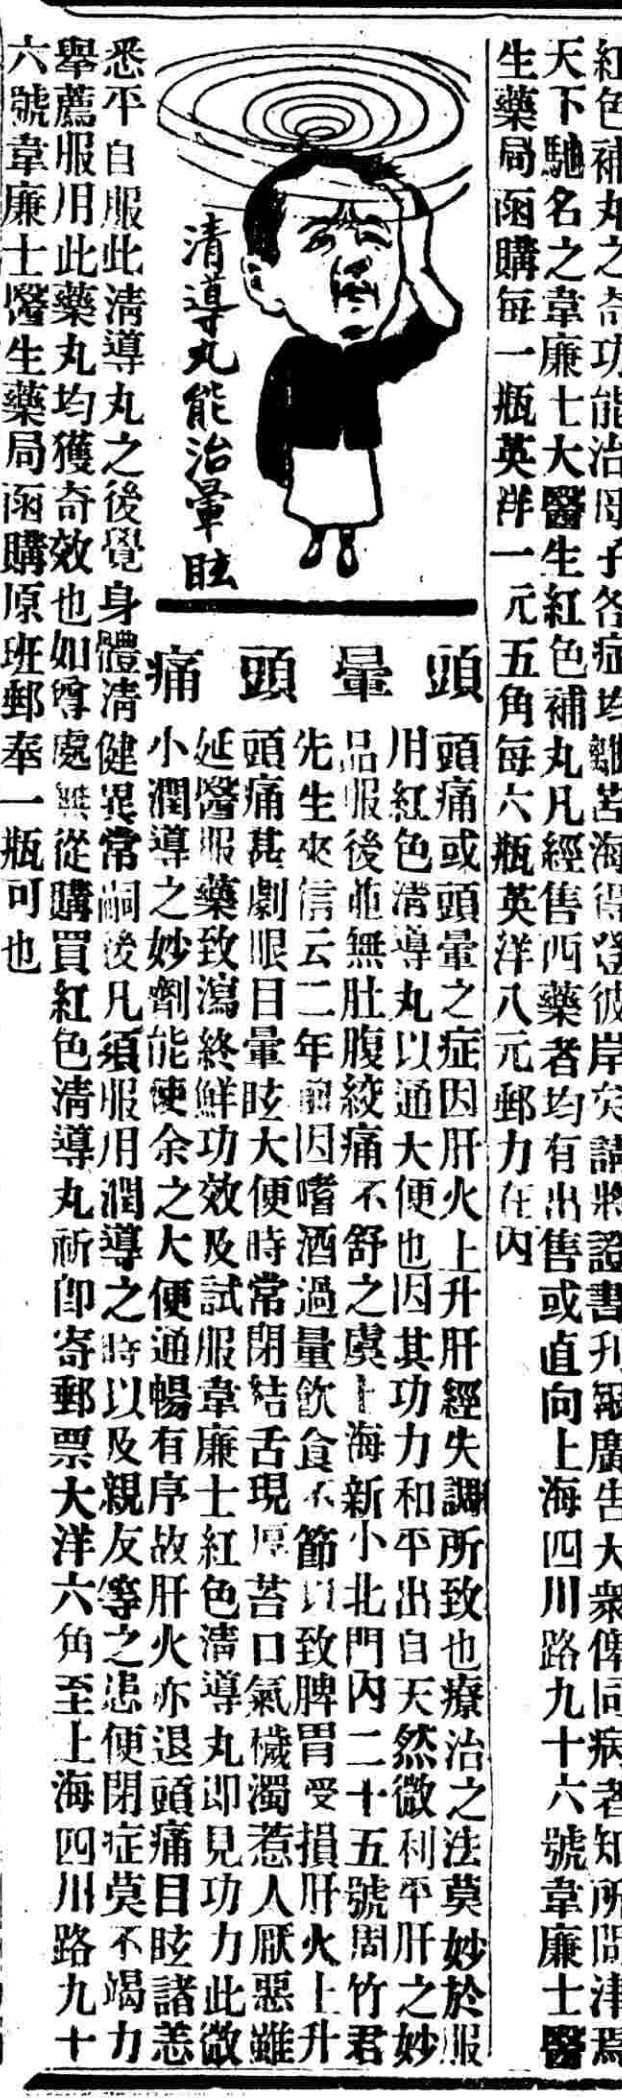 紅色補丸之奇功能治母子各症均離苦海得登彼岸矣請將證書刊報廣告大衆俾同病者知所問津焉
天下馳名之韋廉士大醫生紅色補丸凡經售西藥者均有出售或直向上海四川路九十六號韋廉士醫
生藥局函購每一瓶英洋一元五角每六瓶英洋八元郵力在內
清導丸能治暈眩
頭暈頭痛
頭痛或頭暈之症因肝火上升肝經失調所致也療治之法莫妙於服
用紅色清導丸以通大便也因其功力和平出自天然微利平肝之妙
品服後並無肚腹絞痛不舒之虞上海新小北門內二十五號周竹君
先生來信云二年前因嗜酒過量飲食不節以致脾胃受損肝火上升
頭痛甚劇眼目暈眩大便時常閉結舌現厚苔口氣穢濁惹人厭惡雖
延醫服藥致瀉終鮮功效及試服韋廉士紅色清導丸即見功力此微
小潤導之妙劑能使余之大便通暢有序故肝火亦退頭痛目眩諸恙
悉平自服此清導丸之後覺身體清健異常嗣後凡須服用潤導之時以及親友等之患便閉症莫不竭力
舉薦服用此藥丸均獲奇效也如尊處無從購買紅色清導丸祈即寄郵票大洋六角至上海四川路九十
六號韋廉士醫生藥局函購原班郵奉一瓶可也